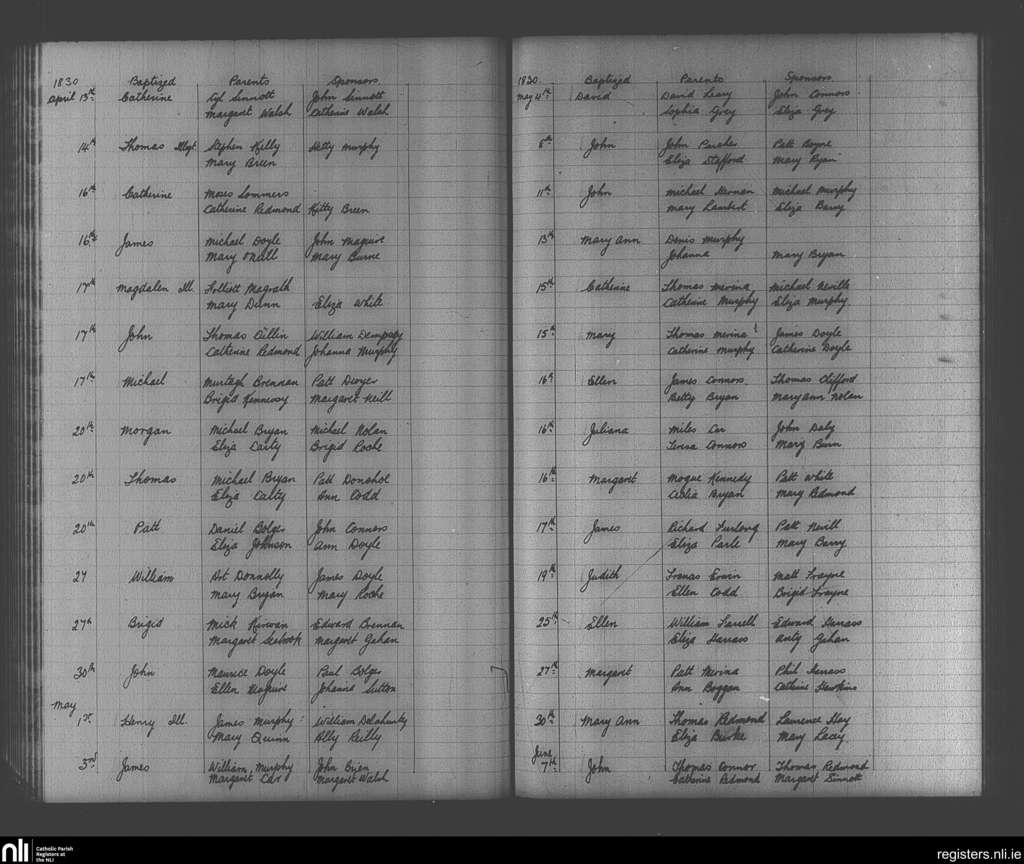 1830 Baptized Parents Sponsors
April 13th Catherine Syl Sinnott John Sinnott
Margaret Walsh Catherine Walsh
14th Thomas Illegt. Stephen Kelly Hetty Murphy
Mary Breen
16th Catherine Moses Sommers
Catherine Redmond Kitty Breen
16th James Michael Doyle John Maguire
Mary O'Neill Mary Burne
17th Magdalen Ill. Folliott Magrath
Mary Dunn Eliza White
17th John Thomas Cullin William Dempsey
Catherine Redmond Johanna Murphy
17th Michael Murtagh Brennan Patt Dwyer
Brigid Kennessy Margaret Neill
20th Morgan Michael Bryan Michael Nolan
Eliza Carty Brigid Roche
20th Thomas Michael Bryan Patt Donohoe
Eliza Calty Ann Codd
20th Patt Daniel Bolger John Connors
Eliza Johnson Ann Doyle
27 William Art Donnolly James Doyle
Mary Bryan Mary Roche
27th Brigid Mick Kirwan Edward Brennan
Margaret Seabrook Margaret Gahan
30th John Maurice Doyle Paul Bolger
Ellen Maguire Johanna Sutton
May
1st Henry Ill. James Murphy William Delahunty
Mary Quinn Ally Reilly
3rd James William Murphy John Brien
Margaret Car Margaret Walsh
1830 Baptized Parents Sponsors
May 4th David David Leary John Connors
Sophia Grey Eliza Grey
8th John John Parcher Patt Boyne
Eliza Stafford Mary Ryan
11th John Michael Hernan Michael Murphy
Mary Lambert Eliza Barry
13th Mary Ann Denis Murphy
Johanna Mary Bryan
15th Catherine Thomas Mernia Michael Neville
Catherine Murphy Eliza Murphy
15th Mary Thomas Mernia James Doyle
Catherine Murphy Catherine Doyle
16th Ellen James Connors Thomas Clifford
Betty Bryan Maryann Nolan
16th Juliana Miles Car John Daly
Teresa Connors Mary Burn
16th Margaret Mogue Kennedy Patt White
Celia Bryan Mary Redmond
17th James Richard Furlong Patt Nevill
Eliza Parle Mary Barry
19th Judith Francis Erwin Matt Frayne
Ellen Codd Brigid Frayne
25th Ellen William Farrell Edward Harrass
Eliza Harrass Anty Gahan
27th Margaret Patt Mernia Phil Harrass
Ann Boggan Catherine Hawkins
30th Mary Ann Thomas Redmond Laurence Hay
Eliza Burke Mary Lacey
June
7th John Thomas Connor Thomas Redmond
Catherine Redmond Margaret Sinnott
nli Catholic Parish
Registers at
the NLI
registers.nli.ie